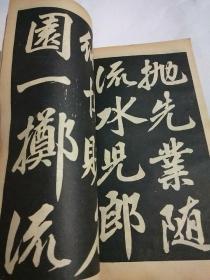 抛先業随
流水兒郎
園一擲流